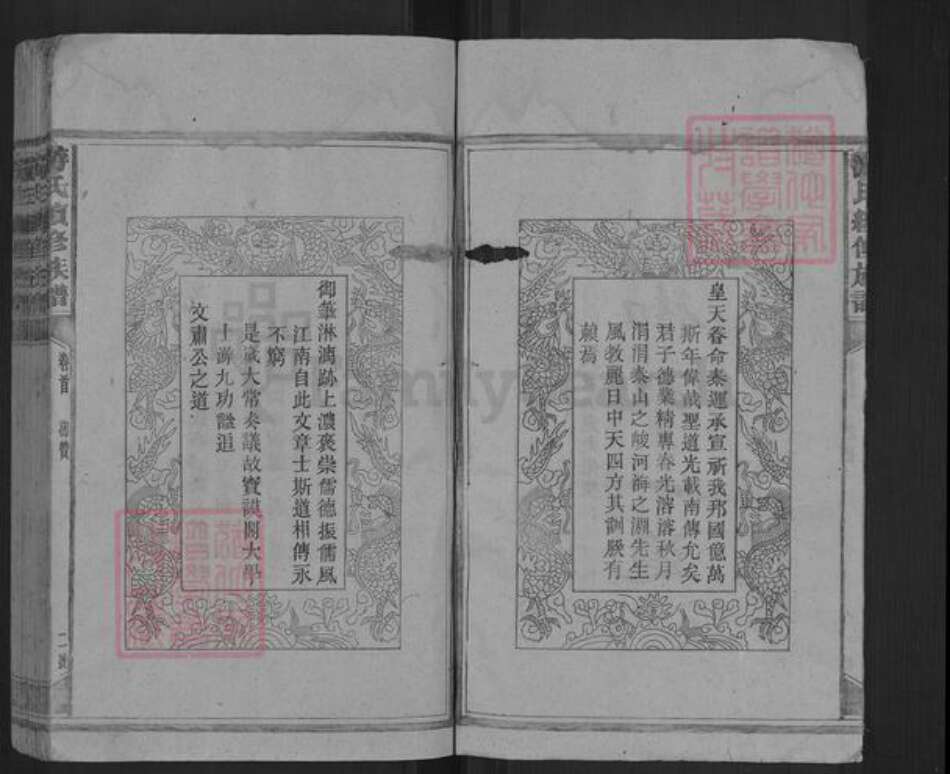 皇天眷命泰運承宣祈我邦國億萬
斯年偉哉聖道光載南傳允矣
君子德業精專春光溶溶秋月
涓涓泰山之峻河海之淵先生
風教麗日中天四方其訓厥有
賴焉
御筆淋漓跡上濃褒崇儒德振儒風
江南自此文章士斯道相傳永
不窮
是歲大常奏議故寶謨閣大學
士游九功諡追
文肅公之道
游氏續修族譜
卷首
二